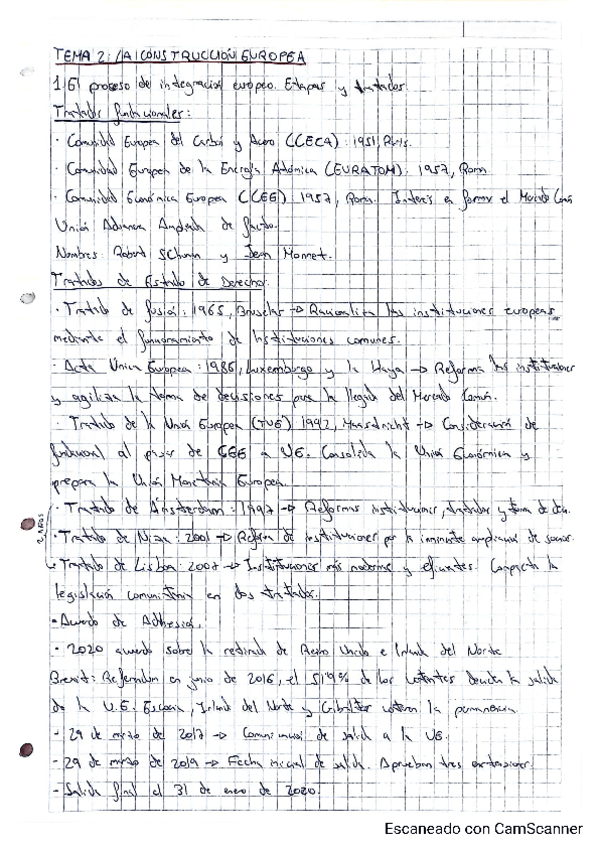 TEMA 2: LA CONSTRUCCIÓN EUROPEA
1. El proceso de integración europeo. Etapas y tratados.
Tratados fundacionales:
· Comunidad Europea del Carbón y Acero (CECA): 1951, París.
· Comunidad Europea de la Energía Atómica (EURATOM): 1957, Roma
· Comunidad Económica Europea (CEE) 1957, Roma. Interés en formar el Mercado Común
Unión Aduanera de facto.
Nombres: Robert Schuman y Jean Monnet.
Tratados de Estado de Derecho:
· Tratado de fusión: 1965, Bruselas → Racionaliza las instituciones europeas
mediante el funcionamiento de instituciones comunes.
· Acta Única Europea: 1986, Luxemburgo y la Haya → Reforma las instituciones
y agiliza la toma de decisiones para la llegada del Mercado Común.
· Tratado de la Unión Europea (TUE) 1992, Maastricht → Consideración de
fundacional al pasar de CEE a UE. Consolida la Unión Económica y
prepara la Unión Monetaria Europea.
· Tratado de Ámsterdam: 1997 → Reformas instituciones, tratados y toma de
· Tratado de Niza: 2001 → Reforma de instituciones por la inminente ampliación de socios.
· Tratado de Lisboa: 2007 → Instituciones más modernas y eficientes. Compacta la
legislación comunitaria en dos tratados.
· Acuerdo de Adhesión.
· 2020 acuerdo sobre la retirada de Reino Unido e Irlanda del Norte
Brexit: Referendum en junio de 2016, el 51'9% de los votantes la salida
de la U.E. Escocia, Irlanda del Norte y Gibraltar votaron la permanencia
- 29 de marzo de 2017 → de salida a la UE.
- 29 de marzo de 2019 → Fecha inicial de salida. Aprueban tres extensiones.
- Salida final el 31 de enero de 2020.
Escaneado con CamScanner